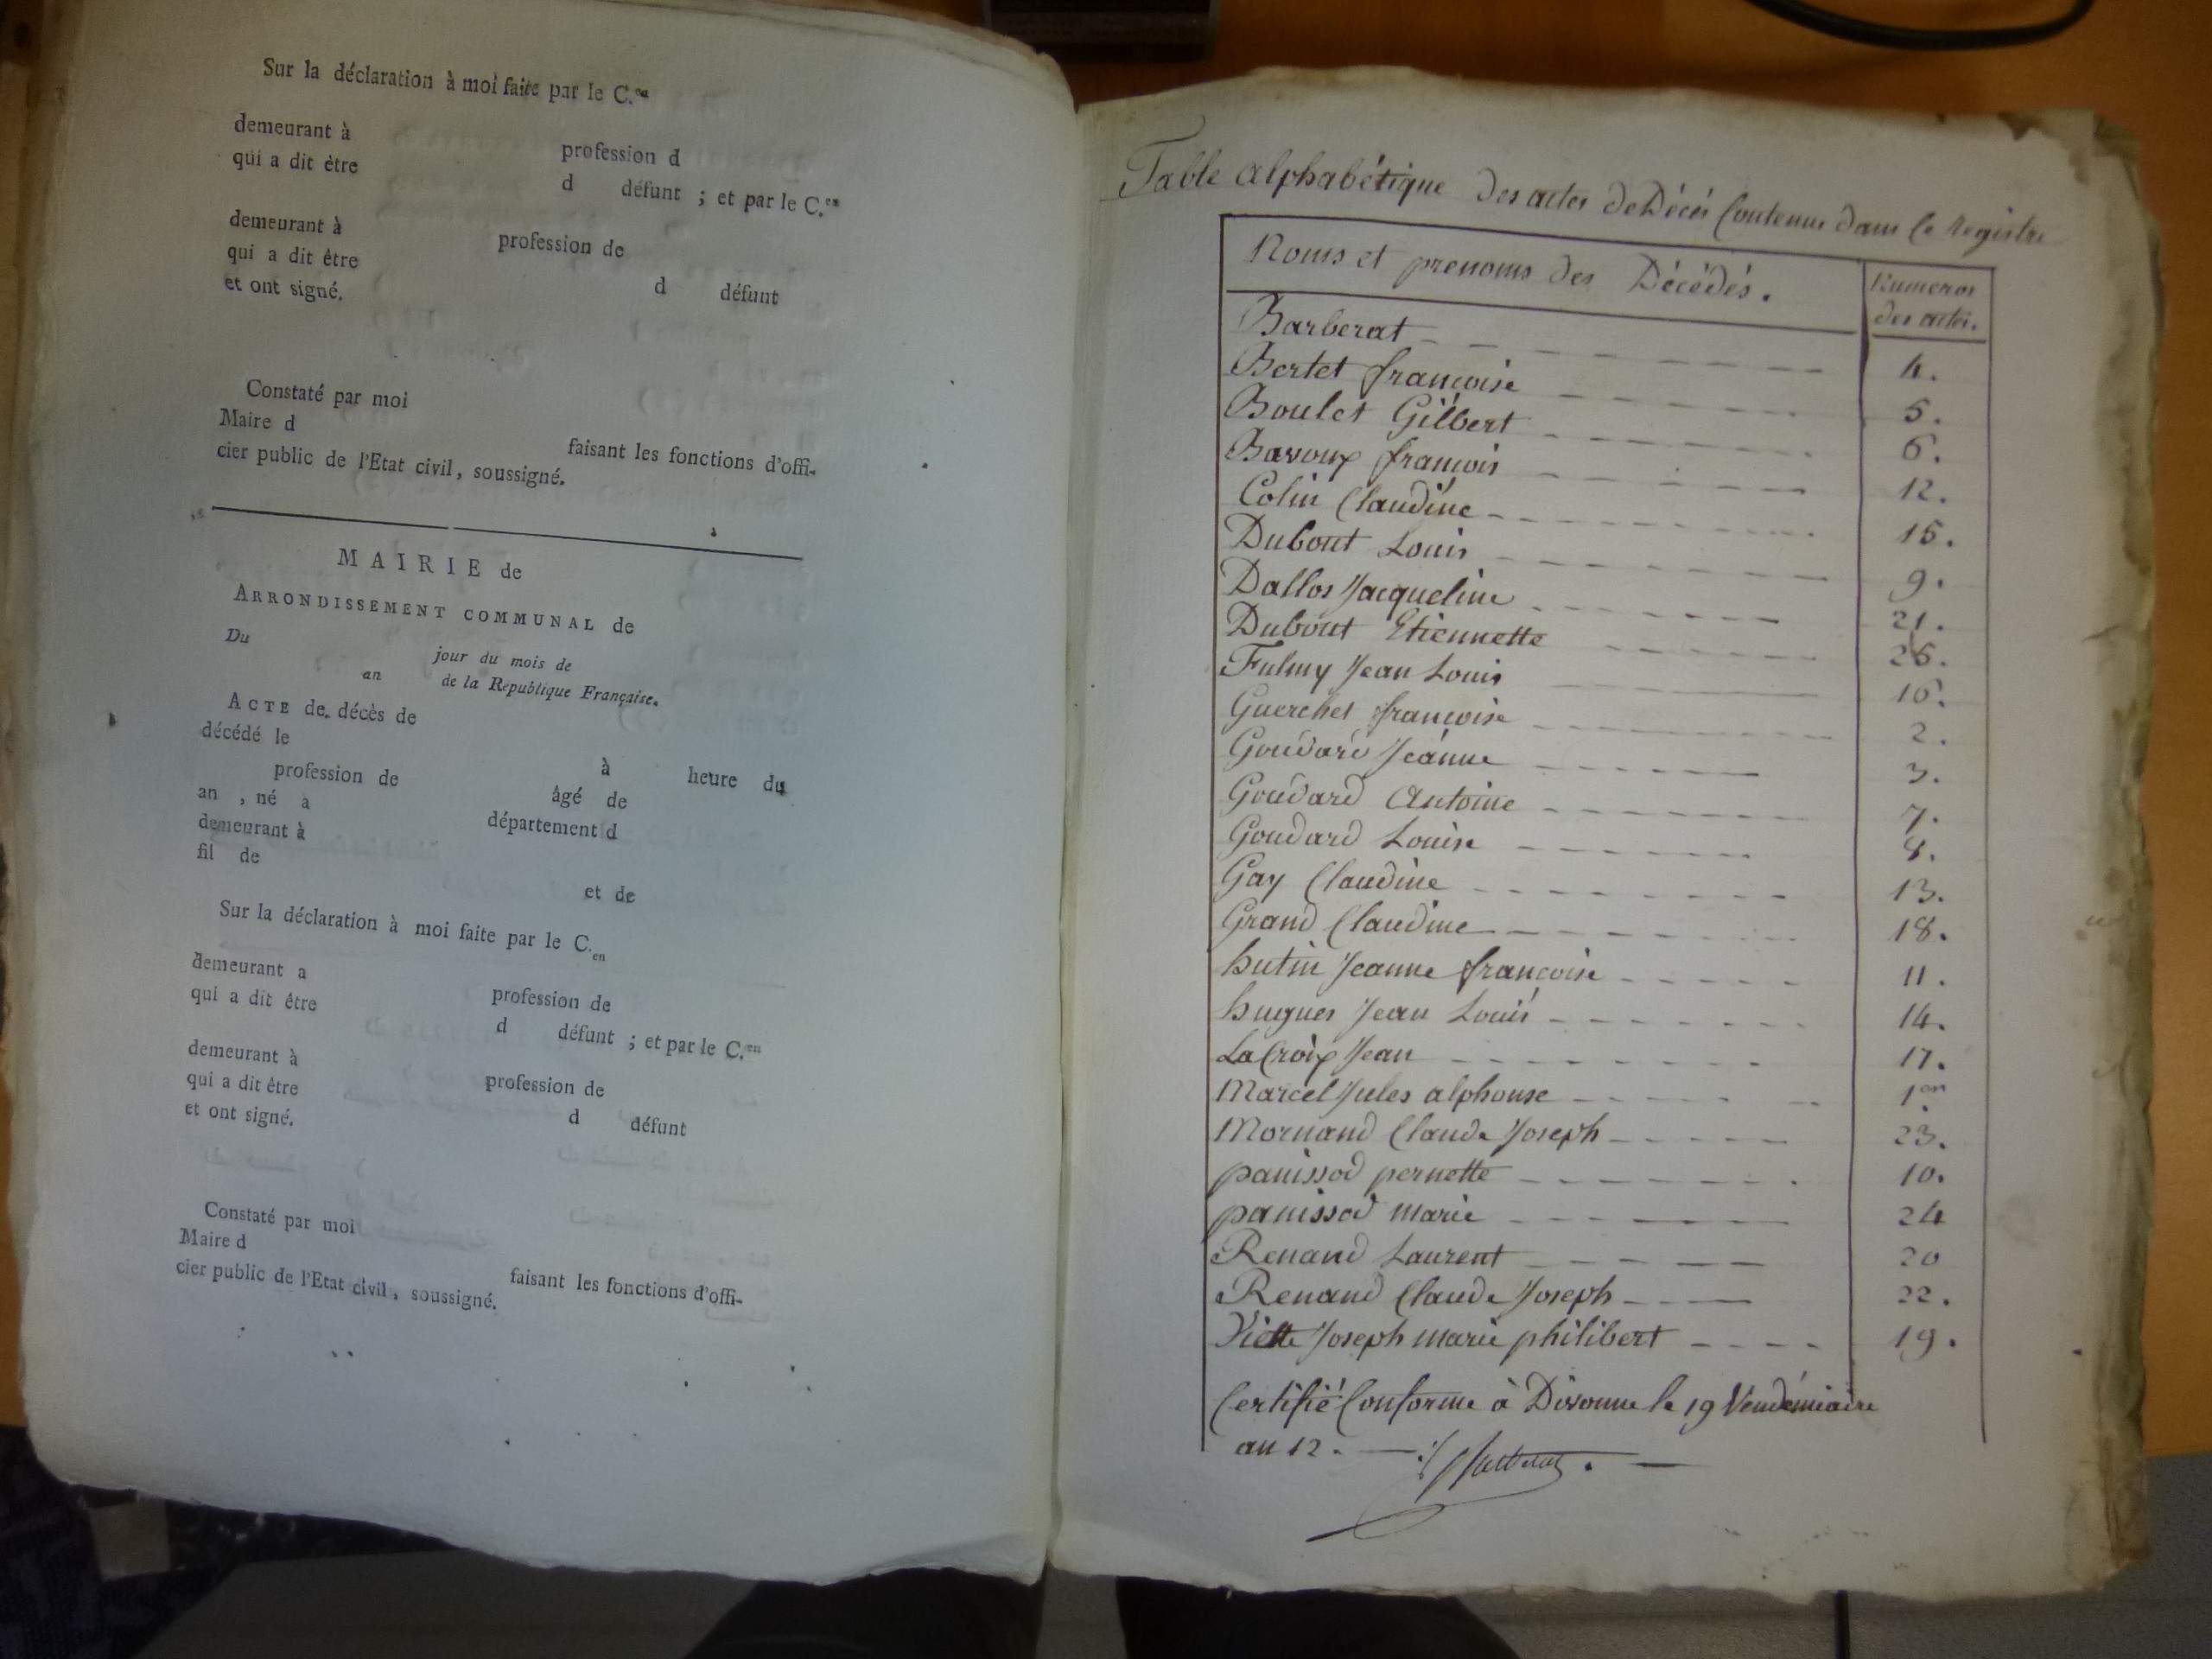 Sur la déclaration à moi faite par le C.en
demeurant à profession d
qui a dit être d défunt ; et par le C.en
demeurant à profession de
qui a dit être d défunt
et ont signé.
Constaté par moi
Maire d faisant les fonctions d'offi-
cier public de l'Etat civil, soussigné.
MAIRIE de
ARRONDISSEMENT COMMUNAL de
Du jour du mois de
an de la République Française.
ACTE de décès de
décédé le à heure du
profession de âgé de
an , né a département d
demeurant à
fil de et de
Sur la déclaration à moi faite par le C.en
demeurant a profession de
qui a dit être d défunt ; et par le C.en
demeurant à profession de
qui a dit être d défunt
et ont signé.
Constaté par moi
Maire d faisant les fonctions d'offi-
cier public de l'Etat civil, soussigné.
Table alphabétique des actes de Décés Contenus dans le Registre
Noms et prenoms des Décédés. Numeros des actes.
Barberat 4.
Bertet françoise 5.
Boulet Gilbert 6.
Bavoux françois 12.
Colin Claudine 15.
Dubout Louis 9.
Dallos Jacqueline 21.
Dubout Etiennette 25.
Fulmy Jean Louis 16.
Guerchet françoise 2.
Goudard Jeanne 3.
Goudard Antoine 7.
Goudard Louise 8.
Gay Claudine 13.
Grand Claudine 18.
hutin Jeanne françoise 11.
hugues Jean Louis 14.
LaCroix Jean 17.
Marcel Jules alphonse 1er
Mornand Claude Joseph 23.
panissod pernette 10.
panissod marie 24
Renand Laurent 20
Renand Claude Joseph 22.
Viette Joseph marie philibert 19.
Certifié Conforme à Divonne le 19 Vendémiaire
an 12.